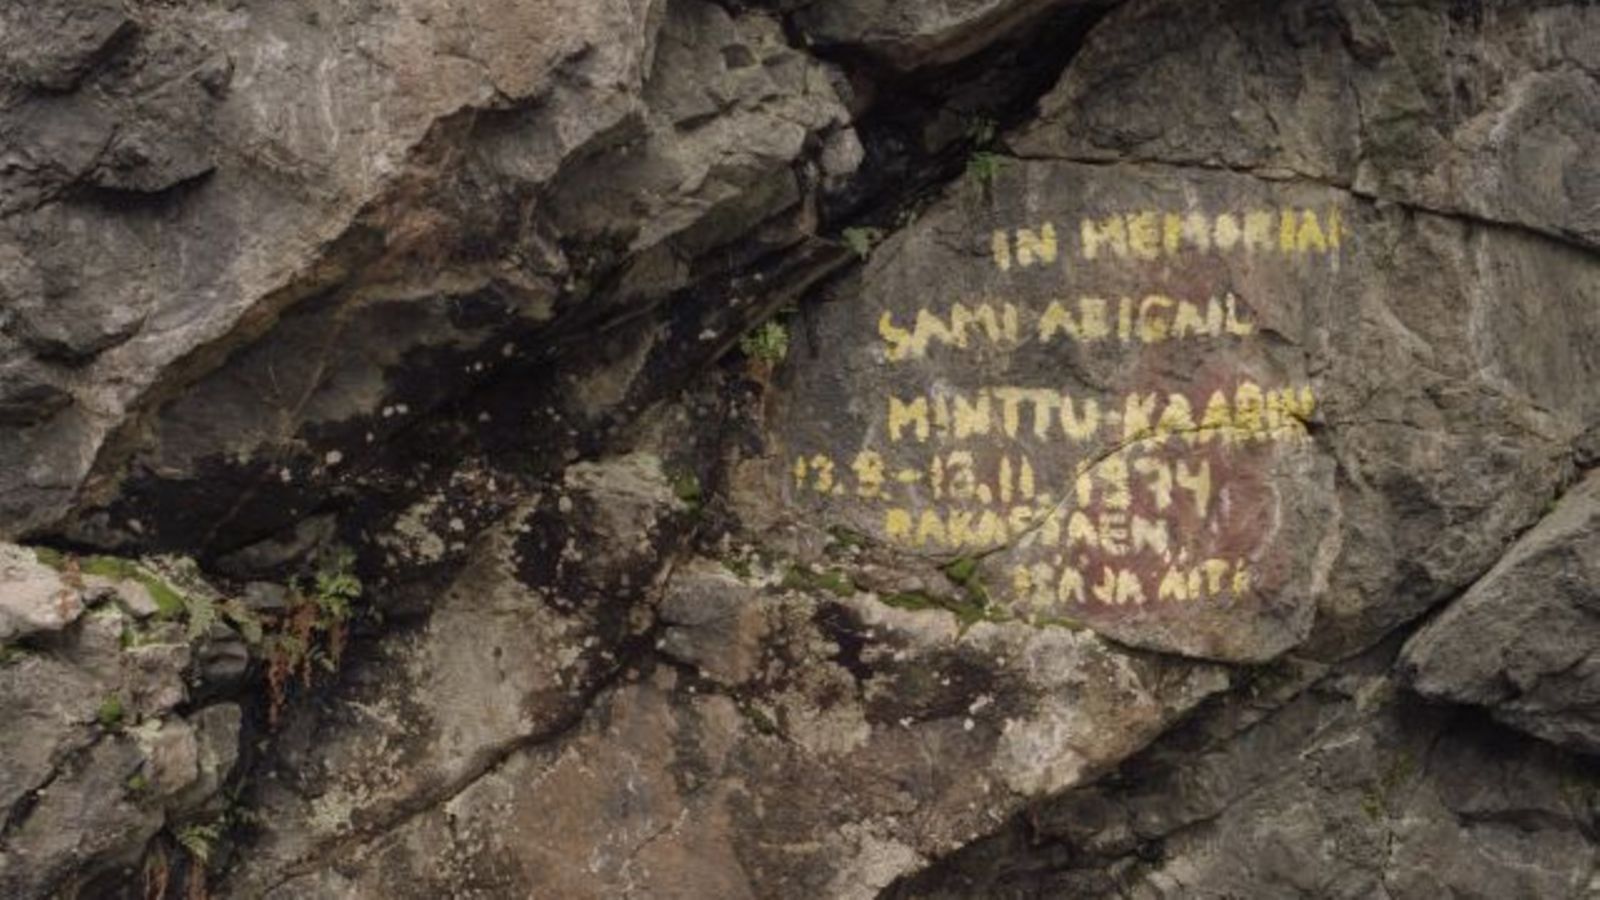 IN MEMORIAM
SAMI ABIGAIL
MINTTU-KAARIN
13.9.-13.11. 1974
RAKASTAEN,
ISÄ JA ÄITI